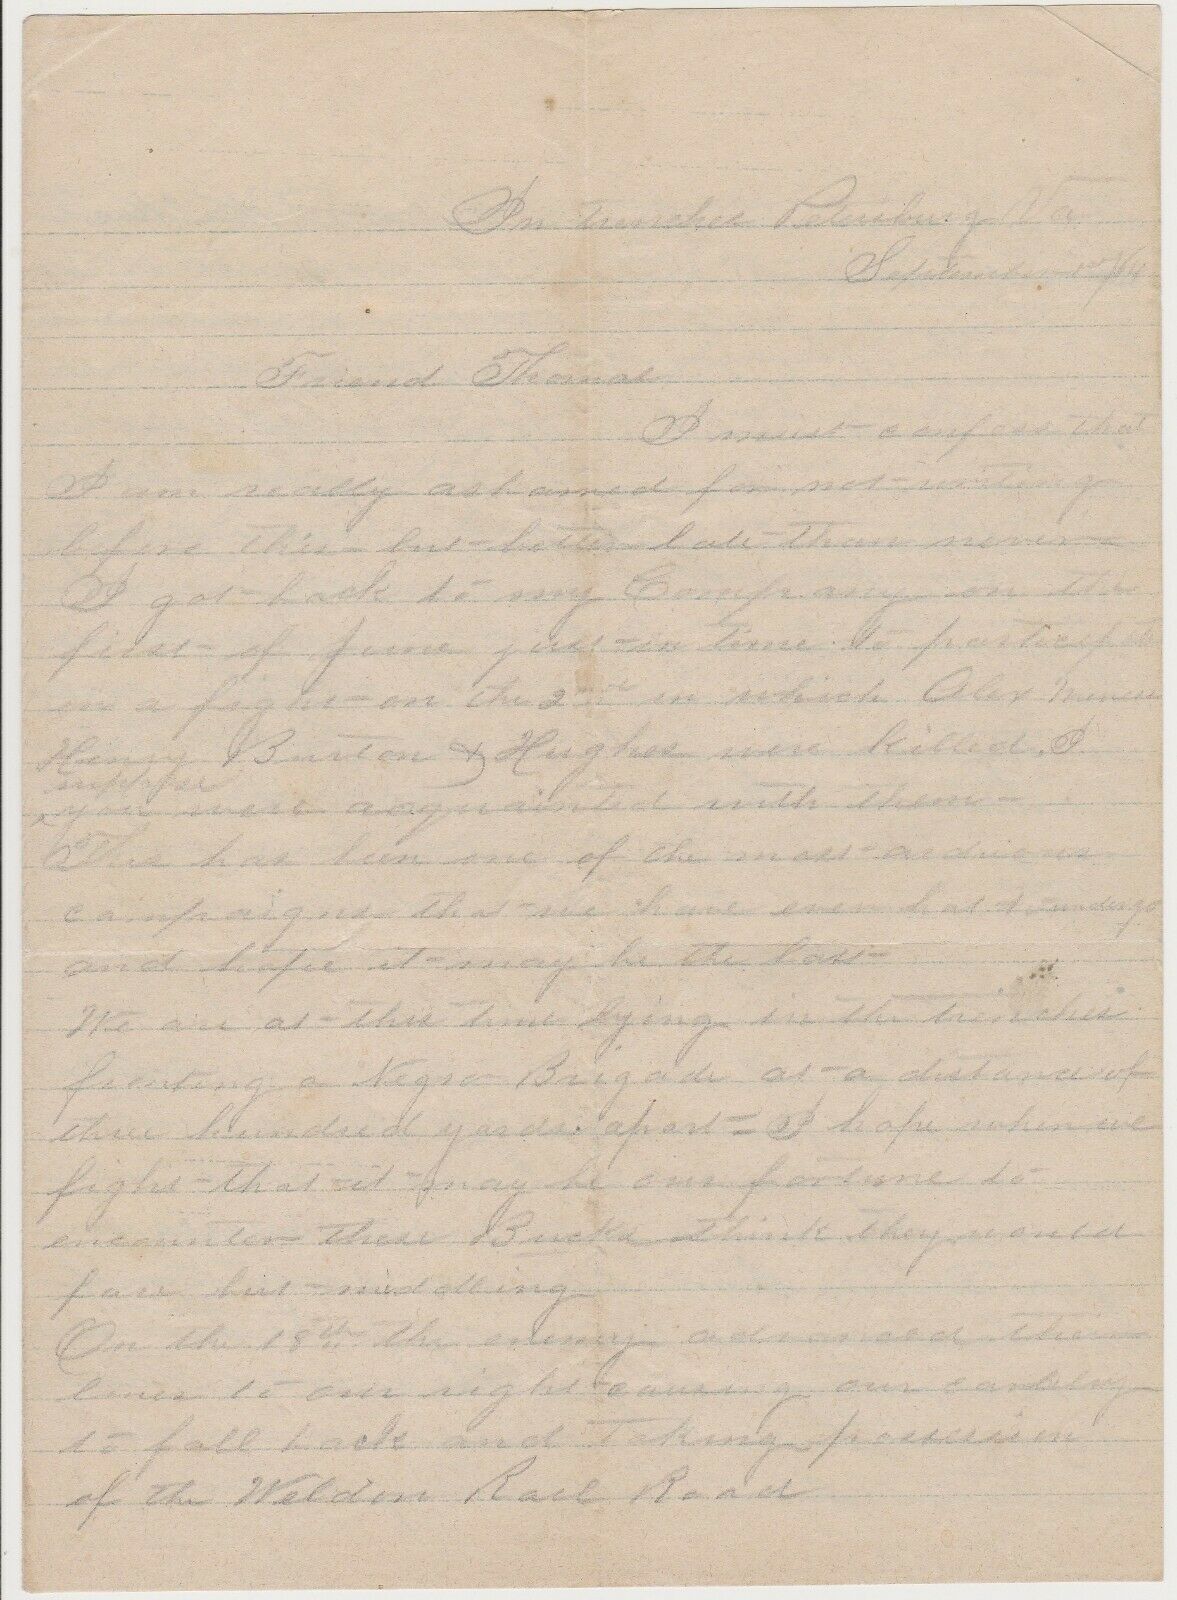 In trenches Petersburg Va
September 1st /64
Friend Thomas
I must confess that
I am really ashamed for not writing
before this - but better late than never -
I got back to my Company on the
first of June just in time to participate
in a fight on the 2nd in which Alex
Henry Burton & Hughes were killed. I
suppose
you were acquainted with them -
This has been one of the most arduous
campaigns that we have ever had to undergo
and hope it may be the last -
We are at this time lying in the trenches
fronting a Negro Brigade at a distance of
three hundred yards apart = I hope when we
fight that it may be our fortune to
encounter these Bucks think they would
fare but middling
On the 18th the enemy advanced their
lines to our right causing our cavalry
to fall back and taking possession
of the Weldon Rail Road